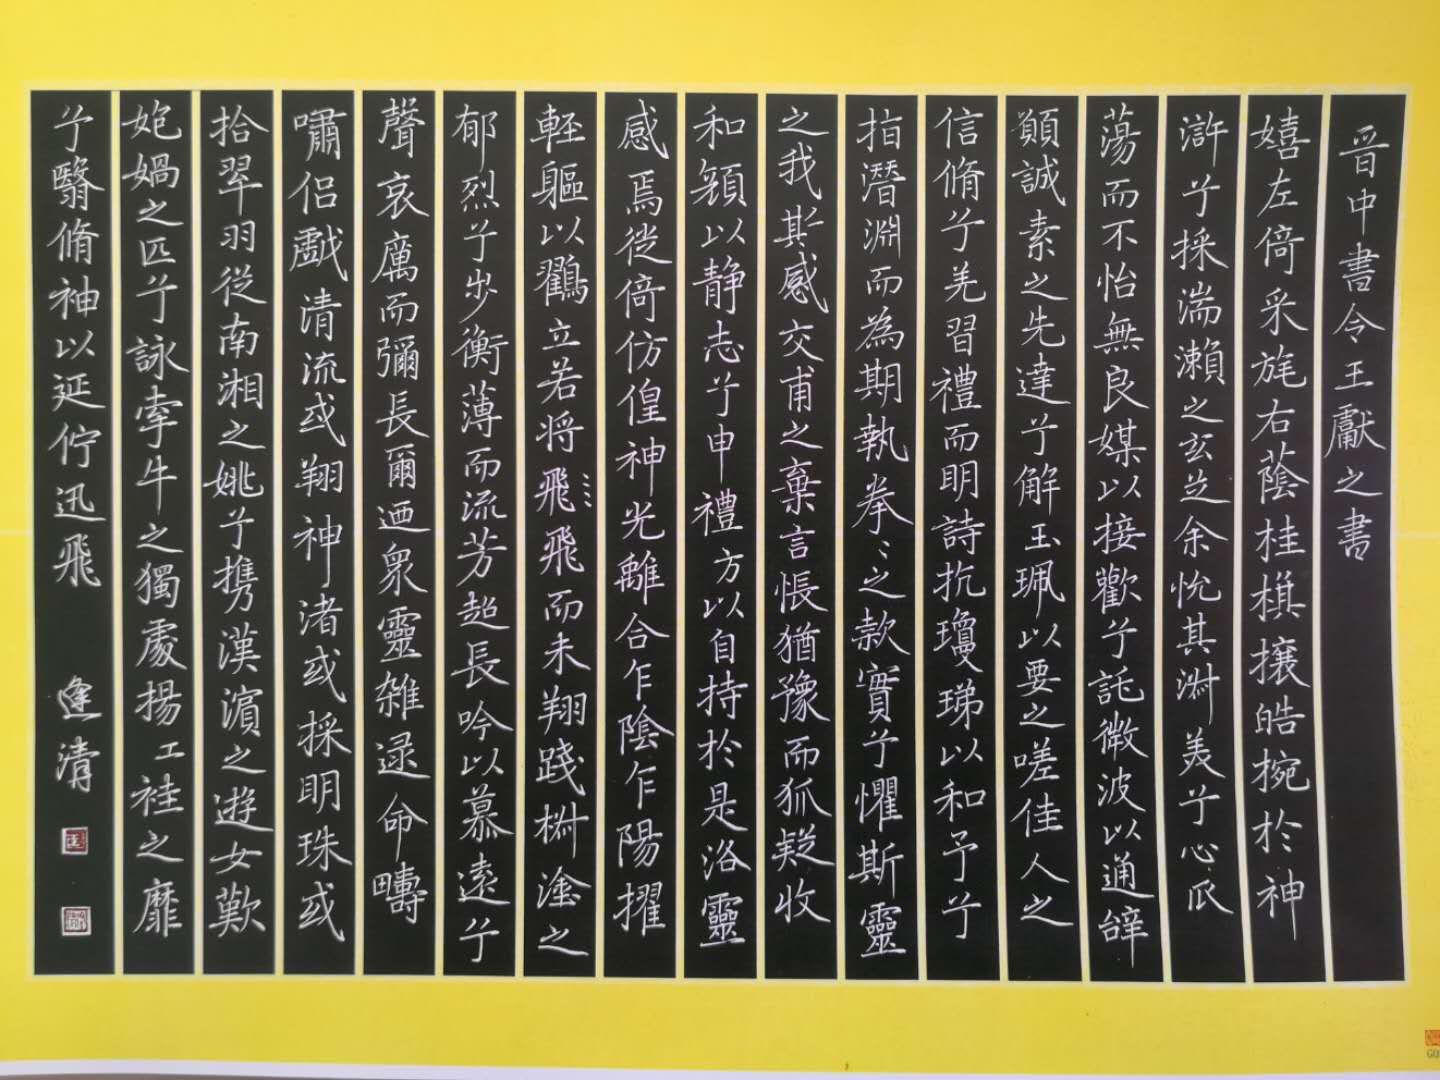 晋中書令王獻之書
嬉左倚采旄右蔭桂棋攘皓捥於神
滸兮採湍瀨之玄芝余悅其淋美兮心爪
蕩而不怡無良媒以接歡兮託微波以通辭
願誠素之先達兮解玉珮以要之嗟佳人之
信脩兮羌習禮而明詩抗瓊珶以和予兮
指潛淵而為期執拳〻之款實兮懼斯靈
之我欺感交甫之棄言悵猶豫而狐疑收
和顏以静志兮申禮方以自持於是洛靈
感焉徙倚仿偟神光離合乍陰乍陽擢
軽軀以鸖立若将飛飛而未翔踐椒塗之
郁烈兮步衡薄而流芳超長吟以慕遠兮
聲哀厲而彌長爾迺衆靈雜遝命疇
嘯侶戲清流或翔神渚或採明珠或
拾翠羽從南湘之姚兮攜漢濱之遊女歎
㚿媧之匹兮詠牽牛之獨處揚㠪袿之靡
兮翳脩神以延佇迅飛 逢清